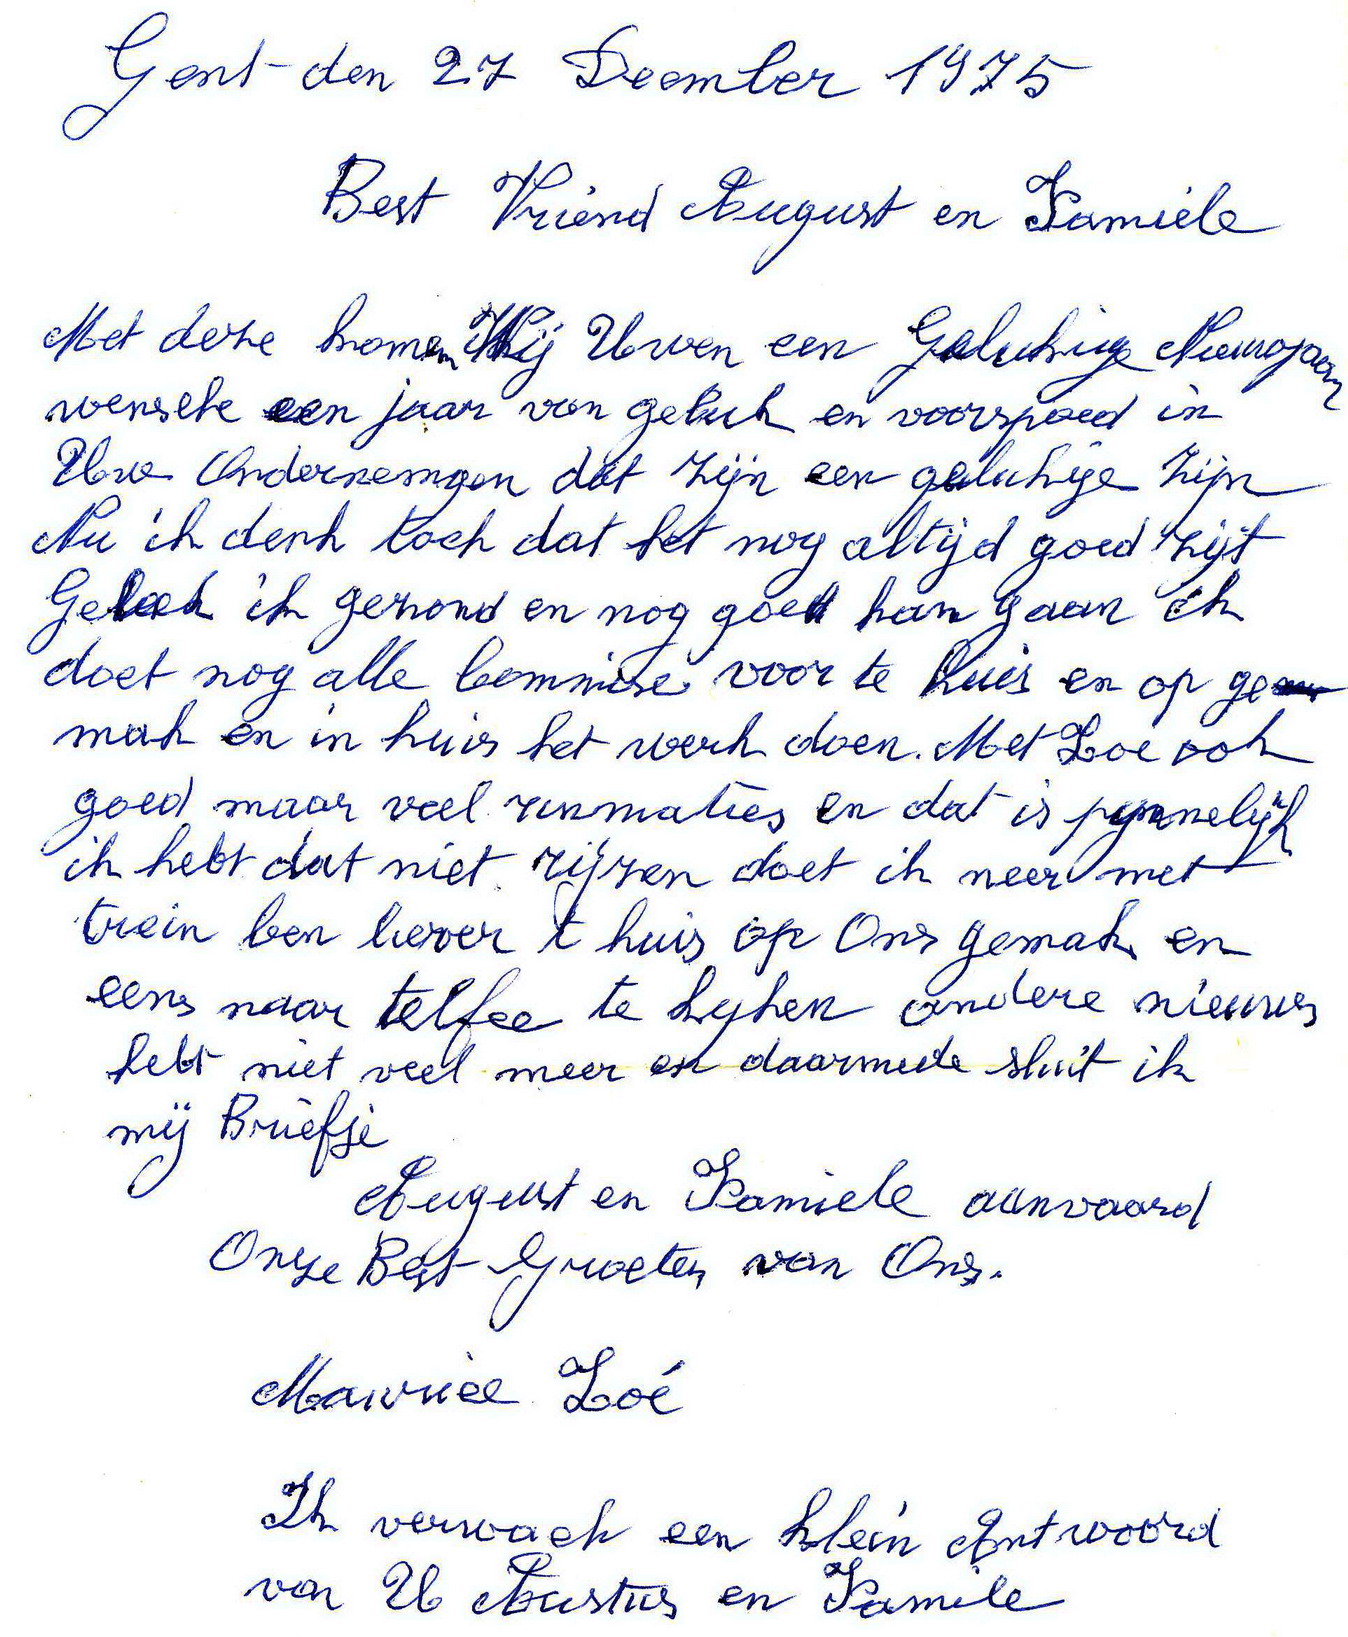 Gent den 27 Deember 1975
Best Vriend August en Famiele
Met deze komen Wij Uwen een Gelukige Nieuwojaar
wensche een jaar van geluk en voorspoed in
Uwe Ondernemgen dat zijn een gelukige zijn
Nu ik denk toch dat het nog altijd goed zijt
Gelook ik gezond en nog goed kan gaan ik
doet nog alle commise voor te huis en op ge
mak en in huis het werk doen. Met Zoe ook
goed maar veel runmaties en dat is pynnelijk
ik hebt dat niet rijzen doet ik neer met
trein ben liever t huis op Ons gemak en
eens naar telfee te kyken andere nieuws
hebt niet veel meer en daarmede sluit ik
mij Briefje
August en Famiele aanvaard
Onze Best Groeten van Ons.
Maurice Zoé
Ik verwach een klein Antwoord
van U Austus en Famile